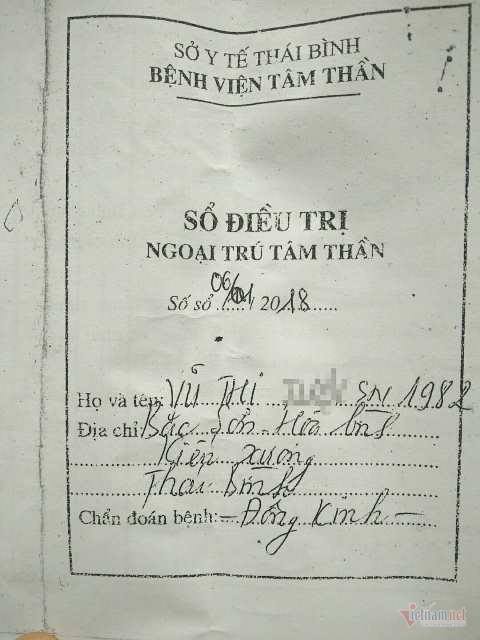 SỞ Y TẾ THÁI BÌNH
BỆNH VIỆN TÂM THẦN
SỔ ĐIỀU TRỊ
NGOẠI TRÚ TÂM THẦN
Số sổ 06/01/2018
Họ và tên: VŨ THỊ SN 1982
Địa chỉ: Bắc Sơn - Hòa Bình
Kiến Xương
Thái Bình
Chẩn đoán bệnh: - Động Kinh -
vietnamnet